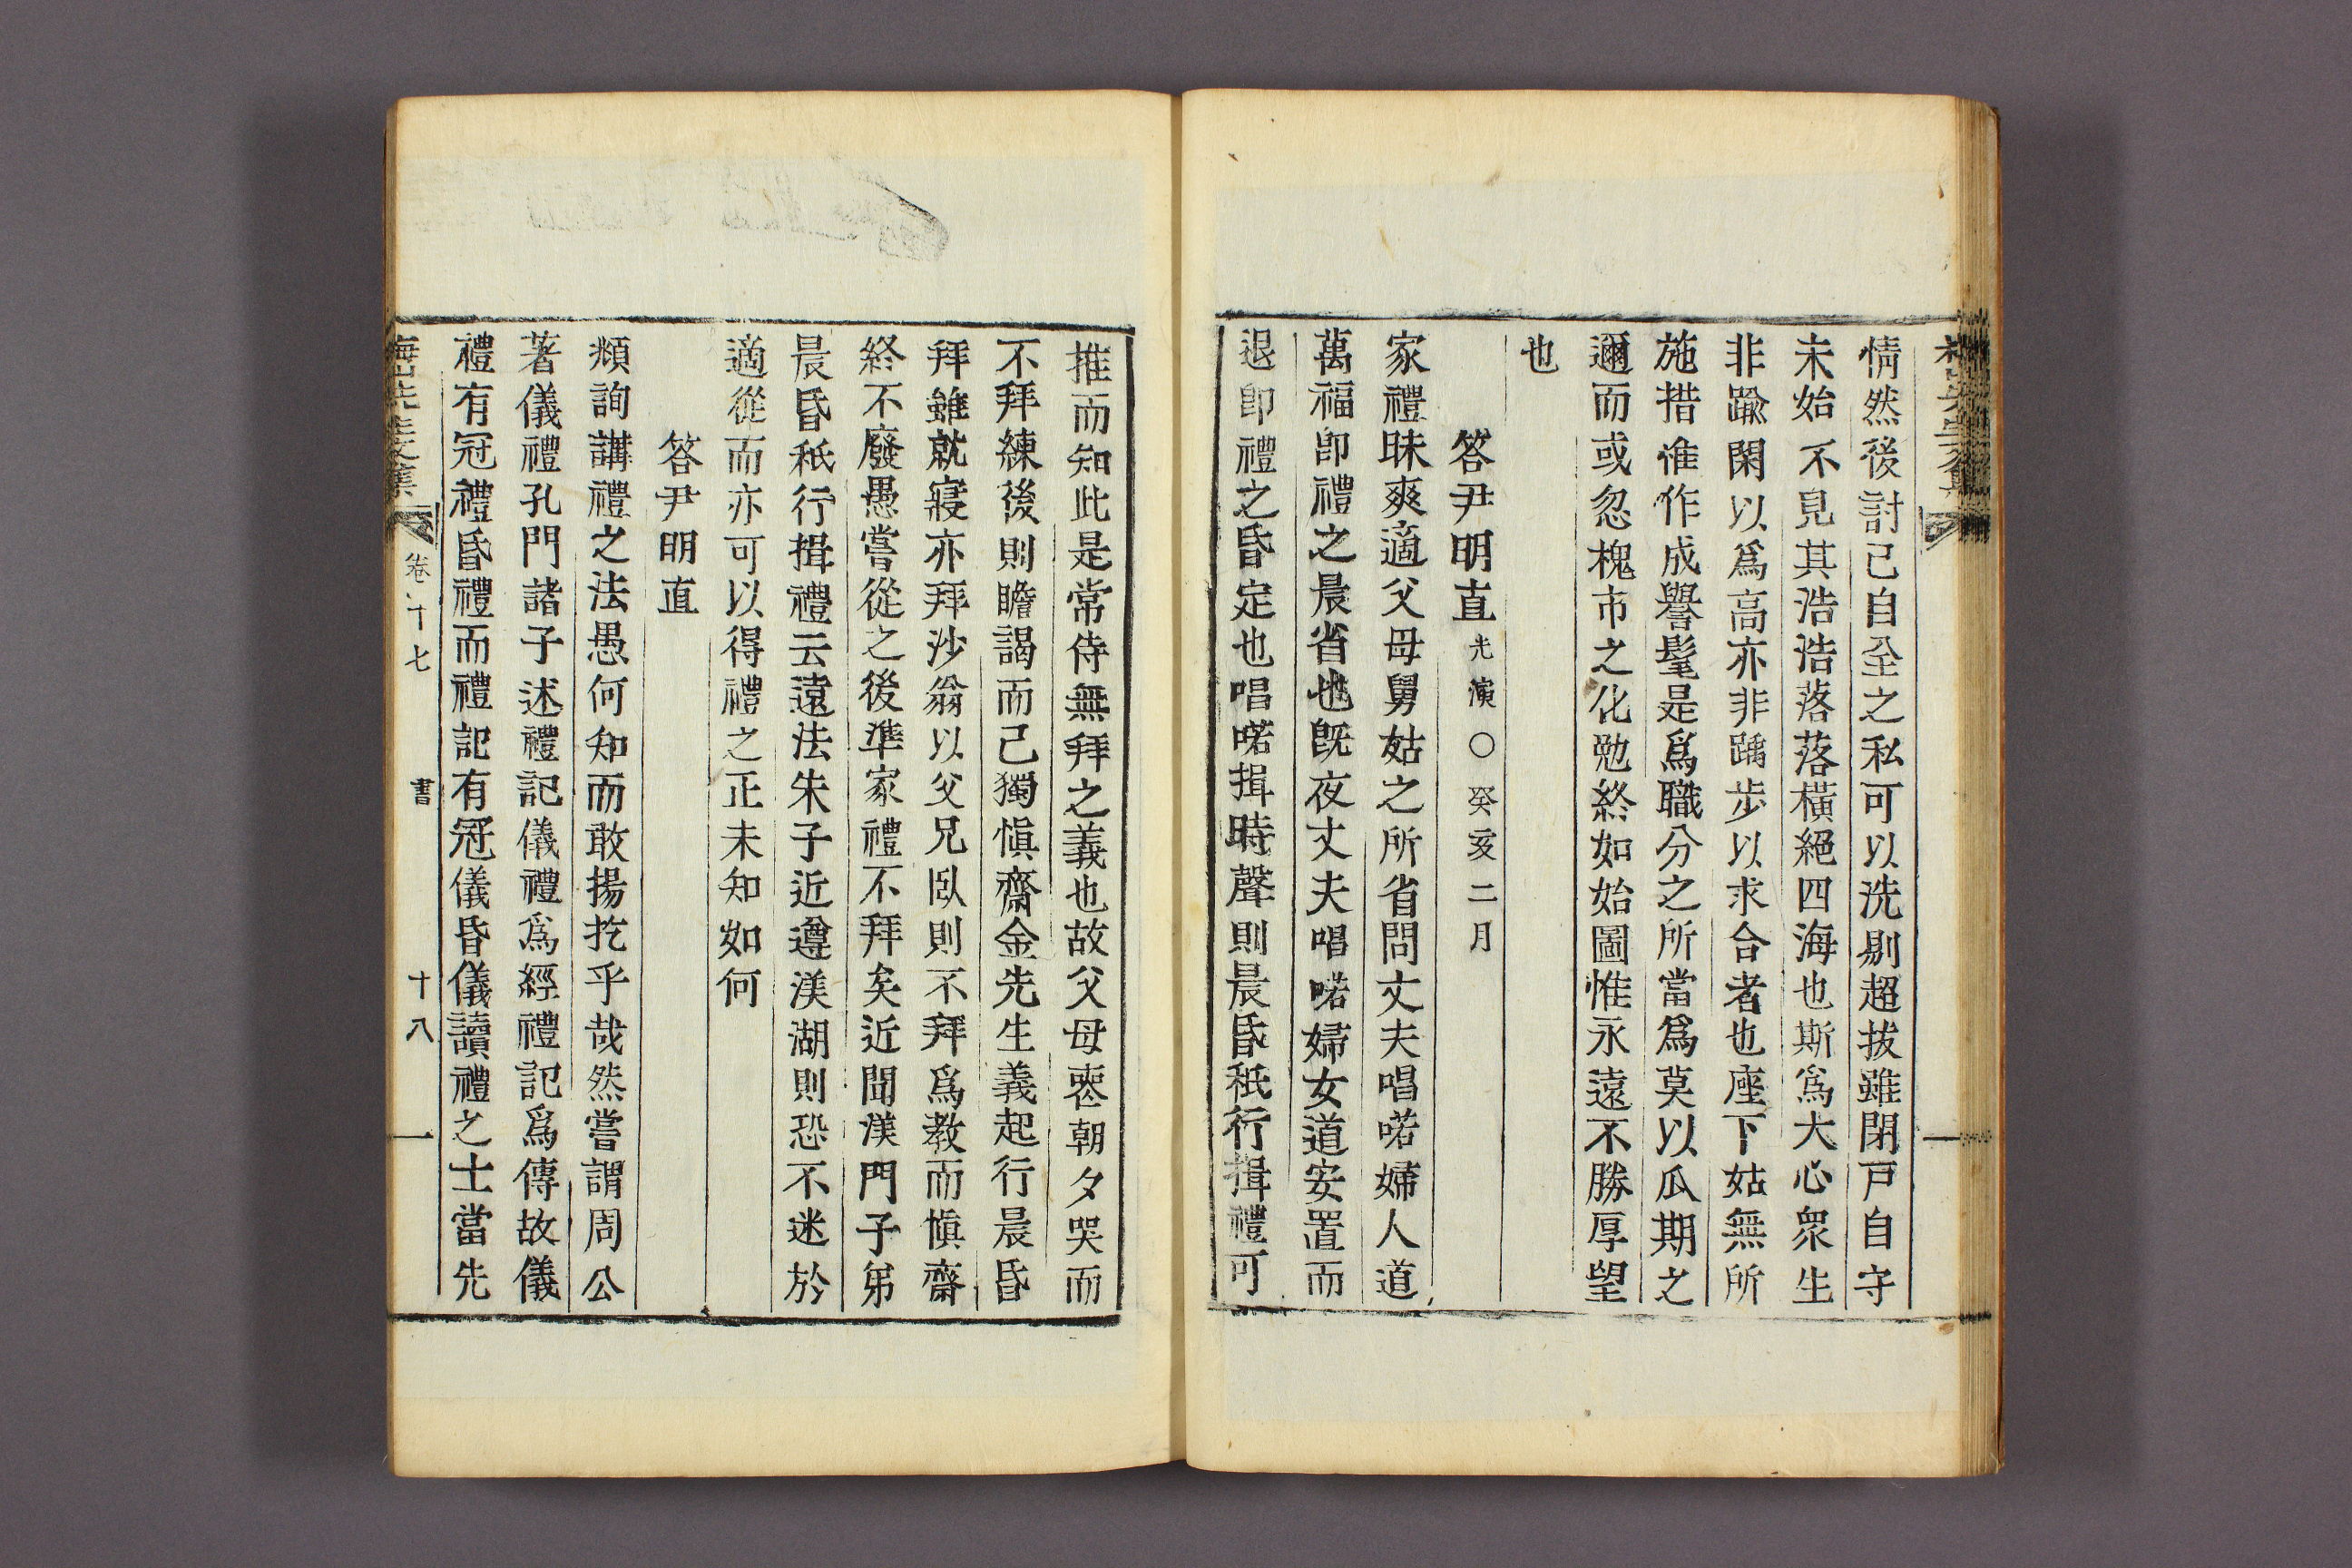 情然後討己自全之私可以洗剔超拔雖閉戶自守
未始不見其浩浩落落橫絕四海也斯爲大心衆生
非踰閑以爲高亦非踽步以求合者也座下姑無所
施措惟作成譽髦是爲職分之所當爲莫以瓜期之
邇而或忽槐市之化勉終如始圖惟永遠不勝厚望
也
答尹明直光演○癸亥二月
家禮昧爽適父母舅姑之所省問丈夫唱喏婦人道
萬福卽禮之晨省也旣夜丈夫唱喏婦女道安置而
退卽禮之昏定也唱喏揖時聲則晨昏秪行揖禮可
推而知此是常侍無拜之義也故父母喪朝夕哭而
不拜練後則瞻謁而已獨愼齋金先生義起行晨昏
拜雖就寢亦拜沙翁以父兄臥則不拜爲教而愼齋
終不廢愚嘗從之後準家禮不拜矣近聞渼門子弟
晨昏秪行揖禮云遠法朱子近遵渼湖則恐不迷於
適從而亦可以得禮之正未知如何
答尹明直
頫詢講禮之法愚何知而敢揚扢乎哉然嘗謂周公
著儀禮孔門諸子述禮記儀禮爲經禮記爲傳故儀
禮有冠禮昏禮而禮記有冠儀昏儀讀禮之士當先
梅山先生文集 卷十七 書 十八